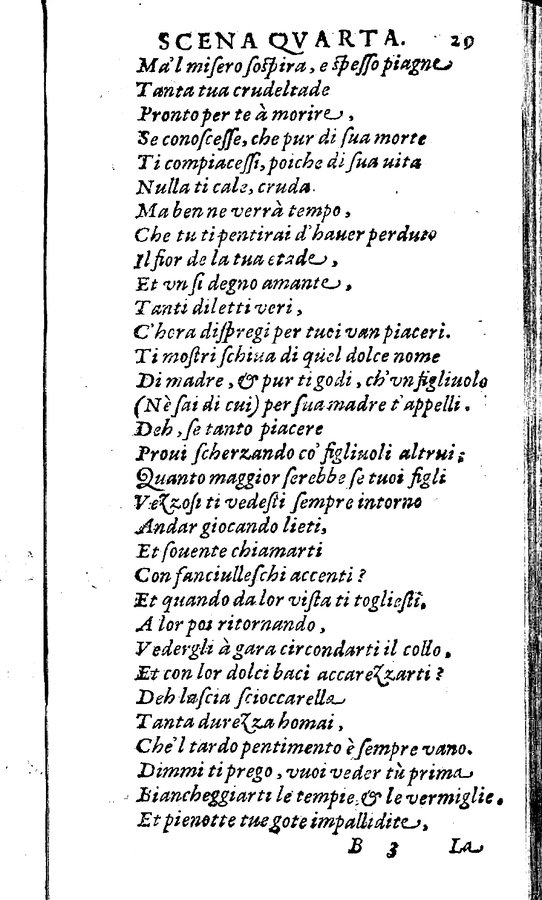 SCENA QVARTA. 29
Ma'l misero sospira, e spesso piagne
Tanta tua crudeltade
Pronto per te à morire,
Se conoscesse, che pur di sua morte
Ti compiacessi, poiche di sua uita
Nulla ti cale, cruda.
Ma ben ne verrà tempo,
Che tu ti pentirai d'hauer perduto
Il fior de la tua etade,
Et vn si degno amante,
Tanti diletti veri,
C'hora dispregi per tuoi van piaceri.
Ti mostri schiua di quel dolce nome
Di madre, & pur ti godi, ch'vn figliuolo
(Nè sai di cui) per sua madre t'appelli.
Deh, se tanto piacere
Proui scherzando co' figliuoli altrui;
Quanto maggior serebbe se tuoi figli
Vezzosi ti vedesti sempre intorno
Andar giocando lieti,
Et souente chiamarti
Con fanciulleschi accenti?
Et quando da lor vista ti togliesti,
A lor poi ritornando,
Vedergli à gara circondarti il collo,
Et con lor dolci baci accarezzarti?
Deh lascia scioccarella
Tanta durezza homai,
Che'l tardo pentimento è sempre vano.
Dimmi ti prego, vuoi veder tù prima
Biancheggiarti le tempie, & le vermiglie,
Et pienotte tue gote impallidite,
B 3 La